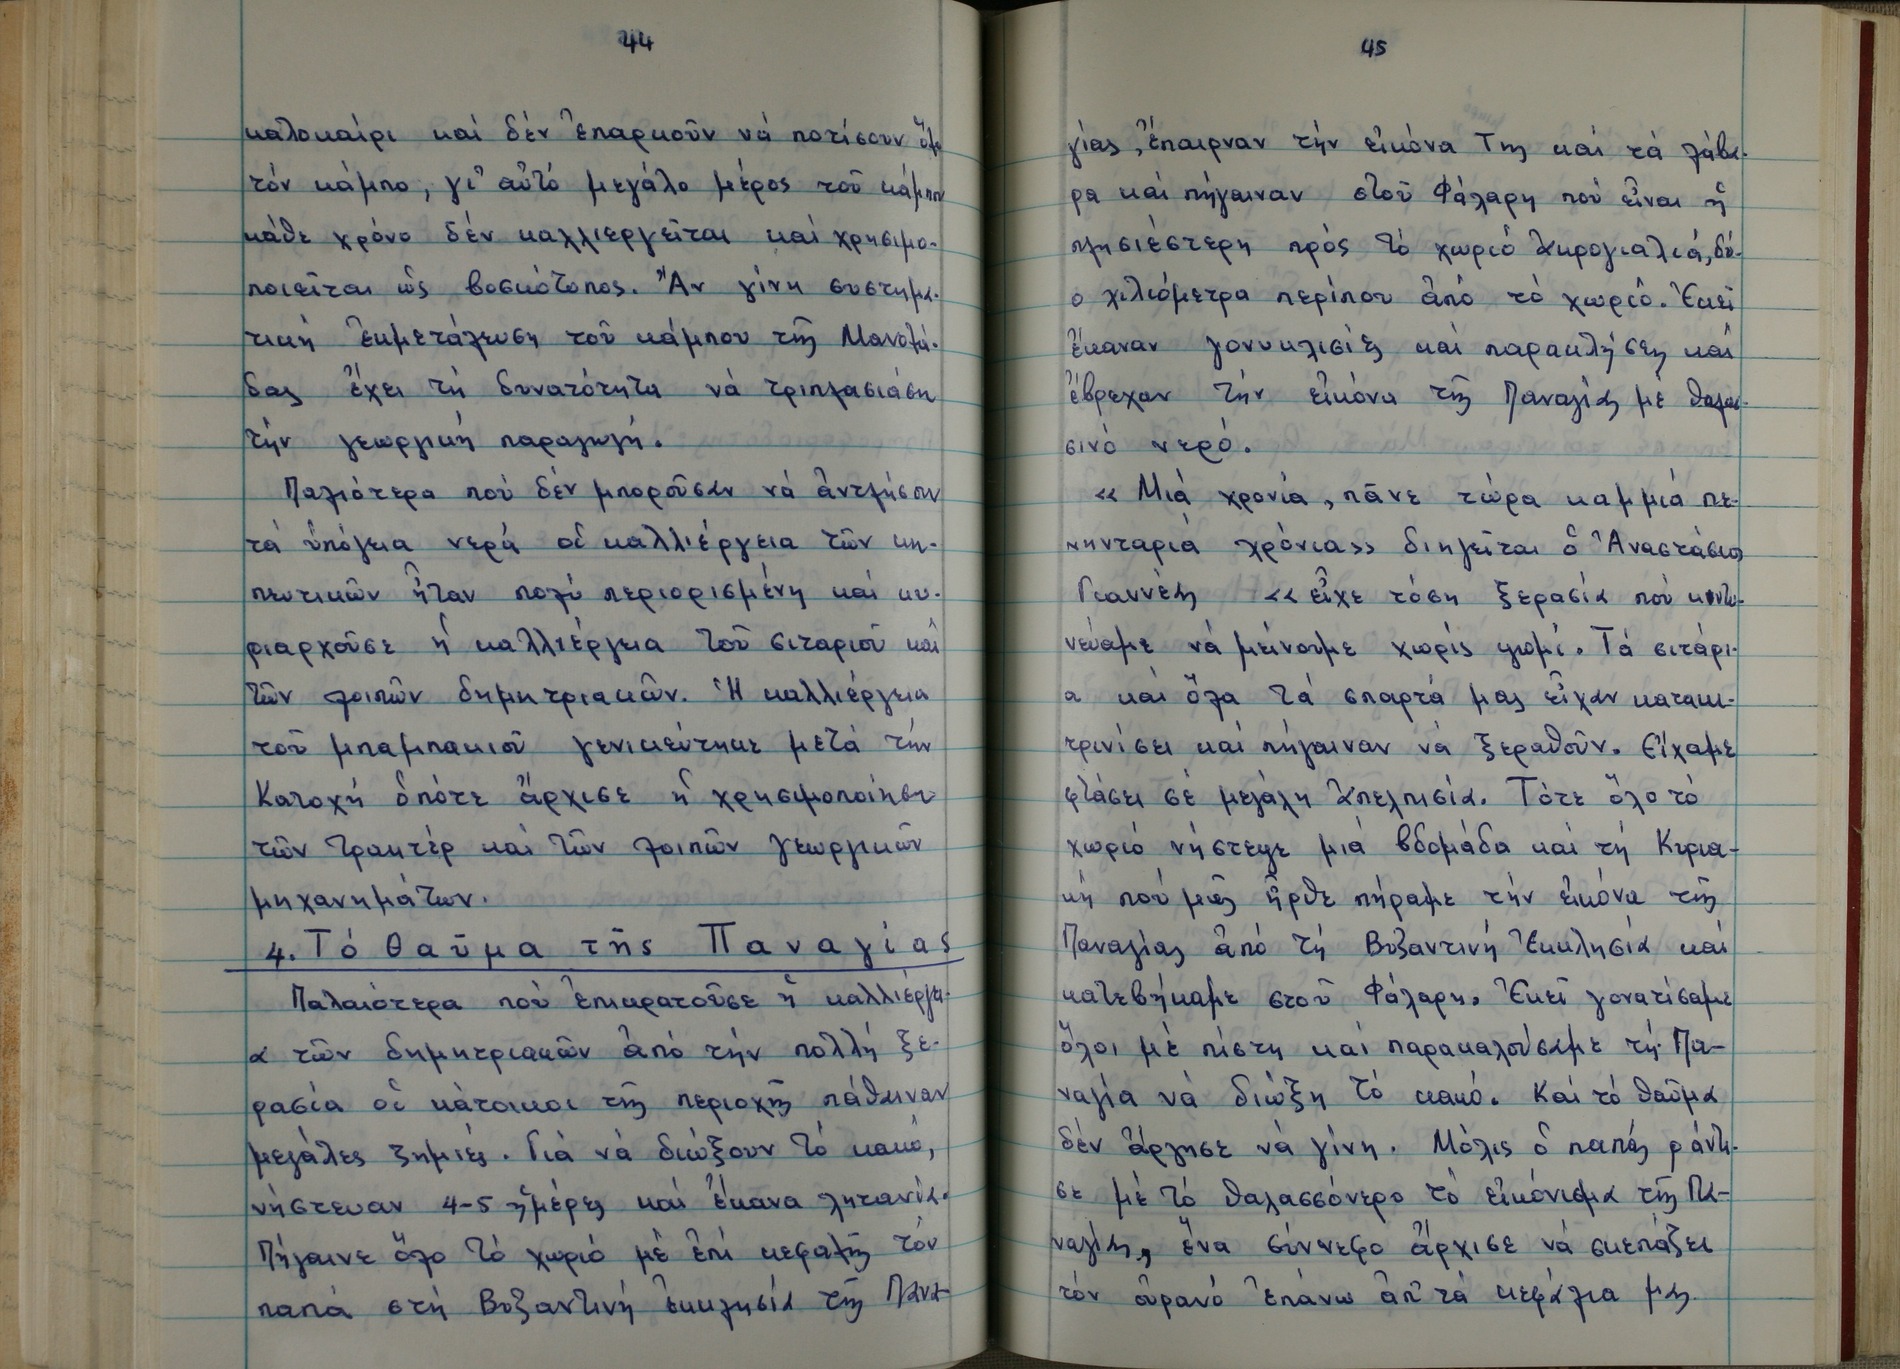 44
καλοκαίρι καί δέν ἐπαρκοῦν νά ποτίσουν ὅλο
τόν κάμπο, γι' αὐτό μεγάλο μέρος τοῦ κάμπου
κάθε χρόνο δέν καλλιεργεῖται καί χρησιμο-
ποιεῖται ὡς βοσκότοπος. Ἄν γίνη συστημα-
τική ἐκμετάλευση τοῦ κάμπου τῆς Μανολά-
δας ἔχει τή δυνατότητα νά τριπλασιάση
τήν γεωργική παραγωγή.
Παλιότερα πού δέν μποροῦσαν νά ἀντλήσουν
τά ὑπόγεια νερά οἱ καλλιέργεια τῶν κη-
πευτικῶν ἦταν πολύ περιορισμένη καί κυ-
ριαρχοῦσε ἡ καλλιέργεια τοῦ σιταριοῦ καί
τῶν λοιπῶν δημητριακῶν. Ἡ καλλιέργεια
τοῦ μπαμπακιοῦ γενικεύτηκε μετά τήν
Κατοχή ὁπότε ἄρχισε ἡ χρησιμοποίηση
τῶν τρακτέρ καί τῶν λοιπῶν γεωργικῶν
μηχανημάτων.
4. Τό θαῦμα τῆς Παναγίας
Παλαιότερα πού ἐπικρατοῦσε ἡ καλλιέργει-
α τῶν δημητριακῶν ἀπό τήν πολλή ξε-
ρασία οἱ κάτοικοι τῆς περιοχῆς πάθαιναν
μεγάλες ζημιές. Γιά νά διώξουν τό κακό,
νήστευαν 4-5 ἡμέρες καί ἔκανα λητανία.
Πήγαινε ὅλο τό χωριό μέ ἐπί κεφαλῆς τόν
παπά στή Βυζαντινή ἐκκλησία τῆς Πανα-
45
γίας, ἔπαιρναν τήν εἰκόνα Της καί τά λάβα-
ρα καί πήγαιναν στοῦ Φάλαρη πού εἶναι ἡ
πλησιέστερη πρός τό χωριό ἀκρογιαλιά, δύ-
ο χιλιόμετρα περίπου ἀπό τό χωριό. Ἐκεῖ
ἔκαναν γονυκλισίες και παρακλήσεις καί
ἔβρεχαν τήν εἰκόνα τῆς Παναγίας μέ θαλασ-
σινό νερό.
« Μιά χρονία, πᾶνε τώρα καμμιά πε-
νηνταριά χρόνια» διηγεῖται ὁ Ἀναστάσιος
Γιαννέας «εἶχε τόση ξερασία πού κιντυ-
νεύαμε νά μείνουμε χωρίς ψωμί. Τά σιτάρι-
α καί ὅλα τά σπαρτά μας εἶχαν κατακι-
τρινίσει καί πήγαιναν νά ξεραθοῦν. Εἴχαμε
φτάσει σέ μεγάλη ἀπελπισία. Τότε ὅλο τό
χωριό νήστεψε μιά βδομάδα καί τή Κυρια-
κή πού μᾶς ἦρθε πήραμε τήν εἰκόνα τῆς
Παναγίας ἀπό τή Βυζαντινή Ἐκκλησία καί
κατεβήκαμε στοῦ Φάλαρη. Ἐκεῖ γονατίσαμε
ὅλοι μέ πίστη καί παρακαλούσαμε τή Πα-
ναγία νά διώξη τό κακό. Καί τό θαῦμα
δέν ἄργησε νά γίνη. Μόλις ὁ παπάς ράντι-
σε μέ τό θαλασσόνερο τό εἰκόνισμα τῆς Πα-
ναγίας, ἕνα σύννεφο ἄρχισε νά σκεπάζει
τόν οὐρανό ἐπάνω ἀπ' τά κεφάλια μας.